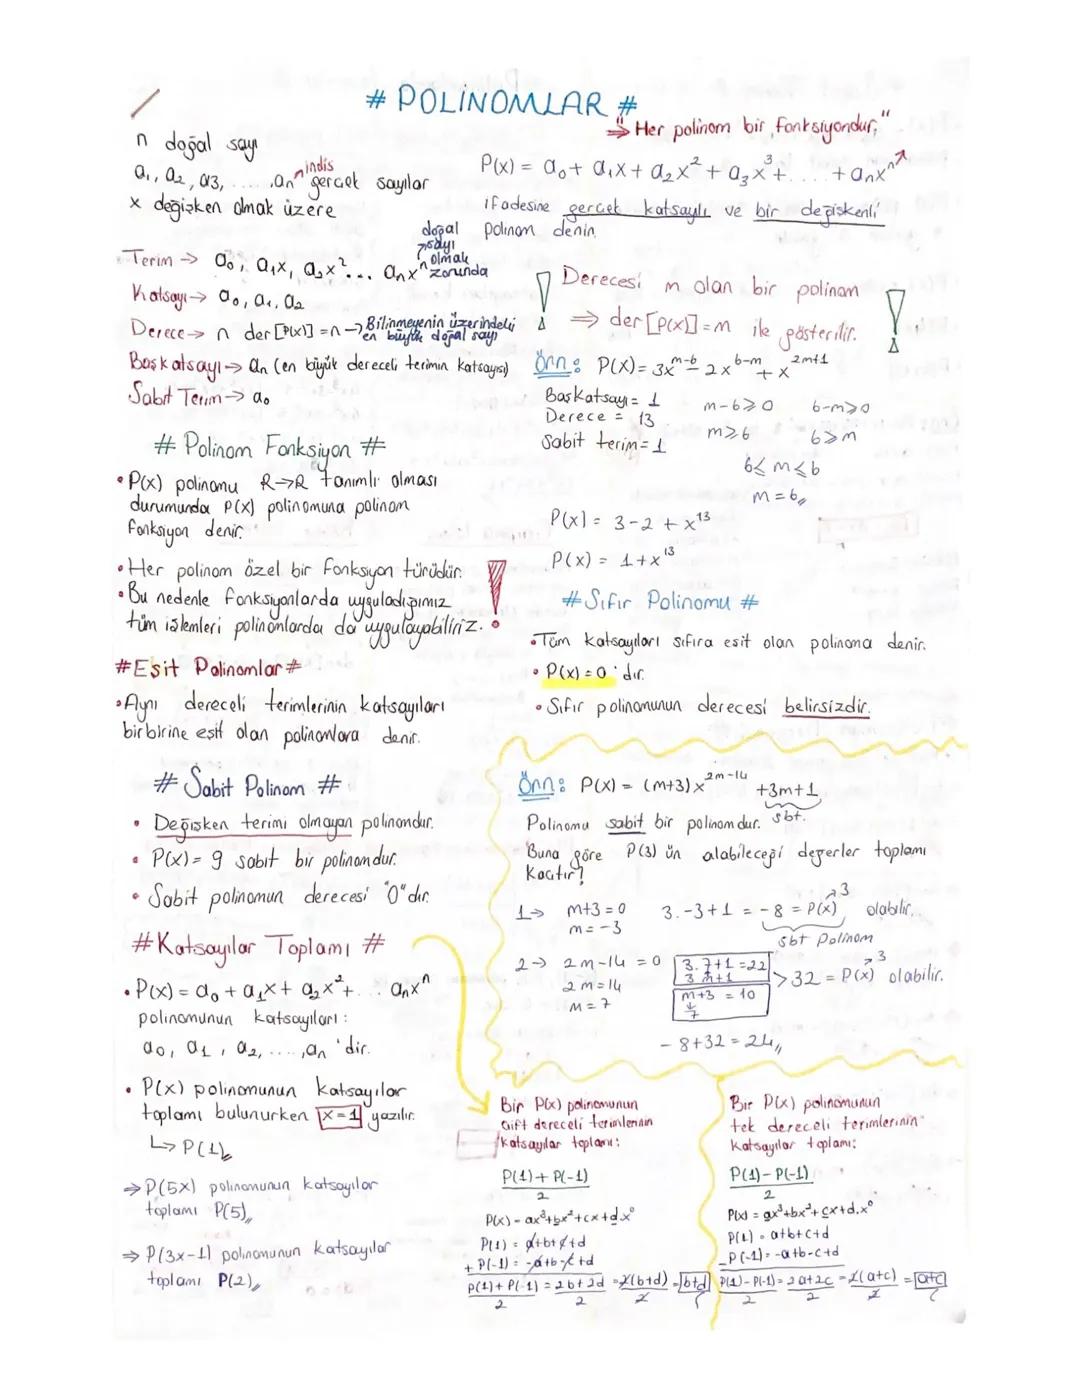 # POLİNOMLAR #
"Her polinom bir fonksiyondur."
n doğal sayı
a₁, a₂, a3, ....., aₙ gerçek sayılar
indis
x değişken olmak üzere
P(x) = a₀ + a₁x + a₂x² + a₃x³ + .... + aₙxⁿ
ifadesine gerçek katsayılı ve bir değişkenli
polinom denir.
Terim → a₀, a₁x, a₂x² ... aₙxⁿ
doğal sayı olmak zorunda
Katsayı → a₀, a₁, a₂
Derece → n der[P(x)] = n → Bilinmeyenin üzerindeki en büyük doğal sayı
Başkatsayı → aₙ (en büyük dereceli terimin katsayısı)
Sabit Terim → a₀
! Derecesi m olan bir polinom !
⇒ der[P(x)] = m ile gösterilir.
Örn: P(x) = 3x^m-6 - 2x^6-m + x^2m+1
Başkatsayı = 1
Derece = 13
Sabit terim = 1
m-6⩾0 6-m⩾0
m⩾6 6⩾m
6⩽m⩽6
m = 6
P(x) = 3-2 + x¹³
P(x) = 1 + x¹³
# Polinom Fonksiyon #
• P(x) polinomu R→R tanımlı olması
durumunda P(x) polinomuna polinom
fonksiyon denir.
• Her polinom özel bir fonksiyon türüdür.
• Bu nedenle fonksiyonlarda uyguladığımız
tüm işlemleri polinomlarda da uygulayabiliriz. !
# Sıfır Polinomu #
• Tüm katsayıları sıfıra eşit olan polinoma denir.
• P(x) = 0 'dır.
• Sıfır polinomunun derecesi belirsizdir.
# Eşit Polinomlar #
• Aynı dereceli terimlerinin katsayıları
birbirine eşit olan polinomlara denir.
# Sabit Polinom #
• Değişken terimi olmayan polinomdur.
• P(x) = 9 sabit bir polinomdur.
• Sabit polinomun derecesi "0"dır.
Örn: P(x) = (m+3)x^2m-14 + 3m+1
sbt.
Polinomu sabit bir polinomdur.
Buna göre P(3) ün alabileceği değerler toplamı
Kaçtır?
1→ m+3 = 0 3.-3+1 = -8 = P(x) olabilir.
3
m = -3
sbt Polinom
2→ 2m-14 = 0 3.7+1 = 22 >32 = P(x) olabilir.
3
2m = 14 3m+1
m = 7 m+3 = 10
7
-8+32 = 24
# Katsayılar Toplamı #
• P(x) = a₀ + a₁x + a₂x² + ... aₙxⁿ
polinomunun katsayıları:
a₀, a₁, a₂, ...., aₙ 'dir.
• P(x) polinomunun katsayılar
toplamı bulunurken x=1 yazılır.
↳ P(1)
⇒ P(5x) polinomunun katsayılar
toplamı P(5)
⇒ P(3x-1) polinomunun katsayılar
toplamı P(2)
Bir P(x) polinomunun
çift dereceli terimlerinin
katsayılar toplamı:
P(1) + P(-1)
2
P(x) = ax³+bx²+cx+d.x⁰
P(1) = a+b+c+d
+ P(-1) = -a+b-c+d
P(1)+P(-1) = 2b+2d = 2(b+d) = b+d
2 2 2
Bir P(x) polinomunun
tek dereceli terimlerinin
Katsayılar toplamı:
P(1) - P(-1)
2
P(x) = ax³+bx²+cx+d.x⁰
P(1) = a+b+c+d
- P(-1) = -a+b-c+d
P(1)-P(-1) = 2a+2c = 2(a+c) = a+c
2 2 2